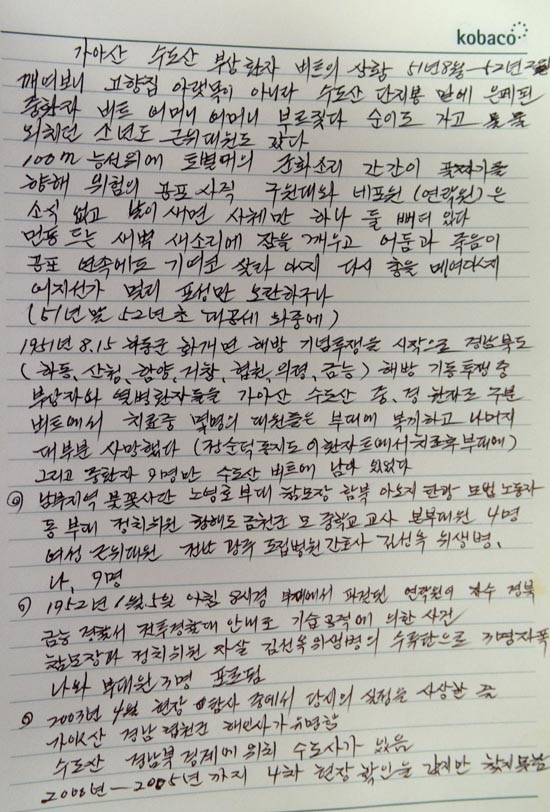 kobaco
가야산 수도산 부상환자 비트의 상황 51年8월-52년 2월
깨여보니 고향집 아랫목이 아니다 수도산 단지봉 밑에 은폐된
중환자 비트 어머니 어머니 부르짖다 순이도 가고 물 물
외치던 소년도 근위대원도 갔다
100m 능선위에 토벌대의 순화소리 간간이
향해 위협의 공포 사격 구원대와 네포원 (연락원)은
소식 없고 날이 새면 사체만 하나 둘 배여 있다
먼동 드는 새벽 새소리에 잠을 깨우고 어둠과 죽음이
공포 연속에도 기여코 살라 아직 다시 총을 메여다오
어디선가 멀리 포성만 요란하구나
(51년말 52년초 대공세 와중에)
1951년 8.15 하동군 화개면 해방 기념투쟁을 시작으로 경남북도
(하동, 산청, 함양, 거창, 합천, 의령, 금능) 해방 기동투쟁 중
부상자와 열병환자들을 가야산 수도산 중, 경 환자로 구분
비트에서 치료중 몇명의 대원들은 부대에 복귀하고 나머지
대부분 사망했다 (정순덕동지도 이 환자트에서 치료후 부대에)
그리고 중환자 9명만 수도산 비트에 남아 있었다
남부지역 불꽃사단 노영호부대 참모장 함북 아오지 탄광 모범 노동자
동 부대 정치위원 황해도 금천군 모 중학교 교사 본부대원 4명
여성 근위대원 전남 광주 도립병원 간호사 김선옥 위생병,
나, 9명
1952년 1월 15일 아침 8시경 부대에서 파견된 연락원이 경북
금능 경찰서 전투경찰대 안내로 기습공격에 의한 사건
참모장과 정치위원 자살 김선옥위생병의 수류탄으로 3명자폭
나와 부대원 3명 포로됨
2003년 4월 현장 답사 중에서 당시의 심정을 사상한 글
가야산 경남 합천군 해인사가 유명함
수도산 경남북 경계에 위치 수도사가 있음
2000년-2005년까지 4차 현장 확인을 갔지만 찾지못함